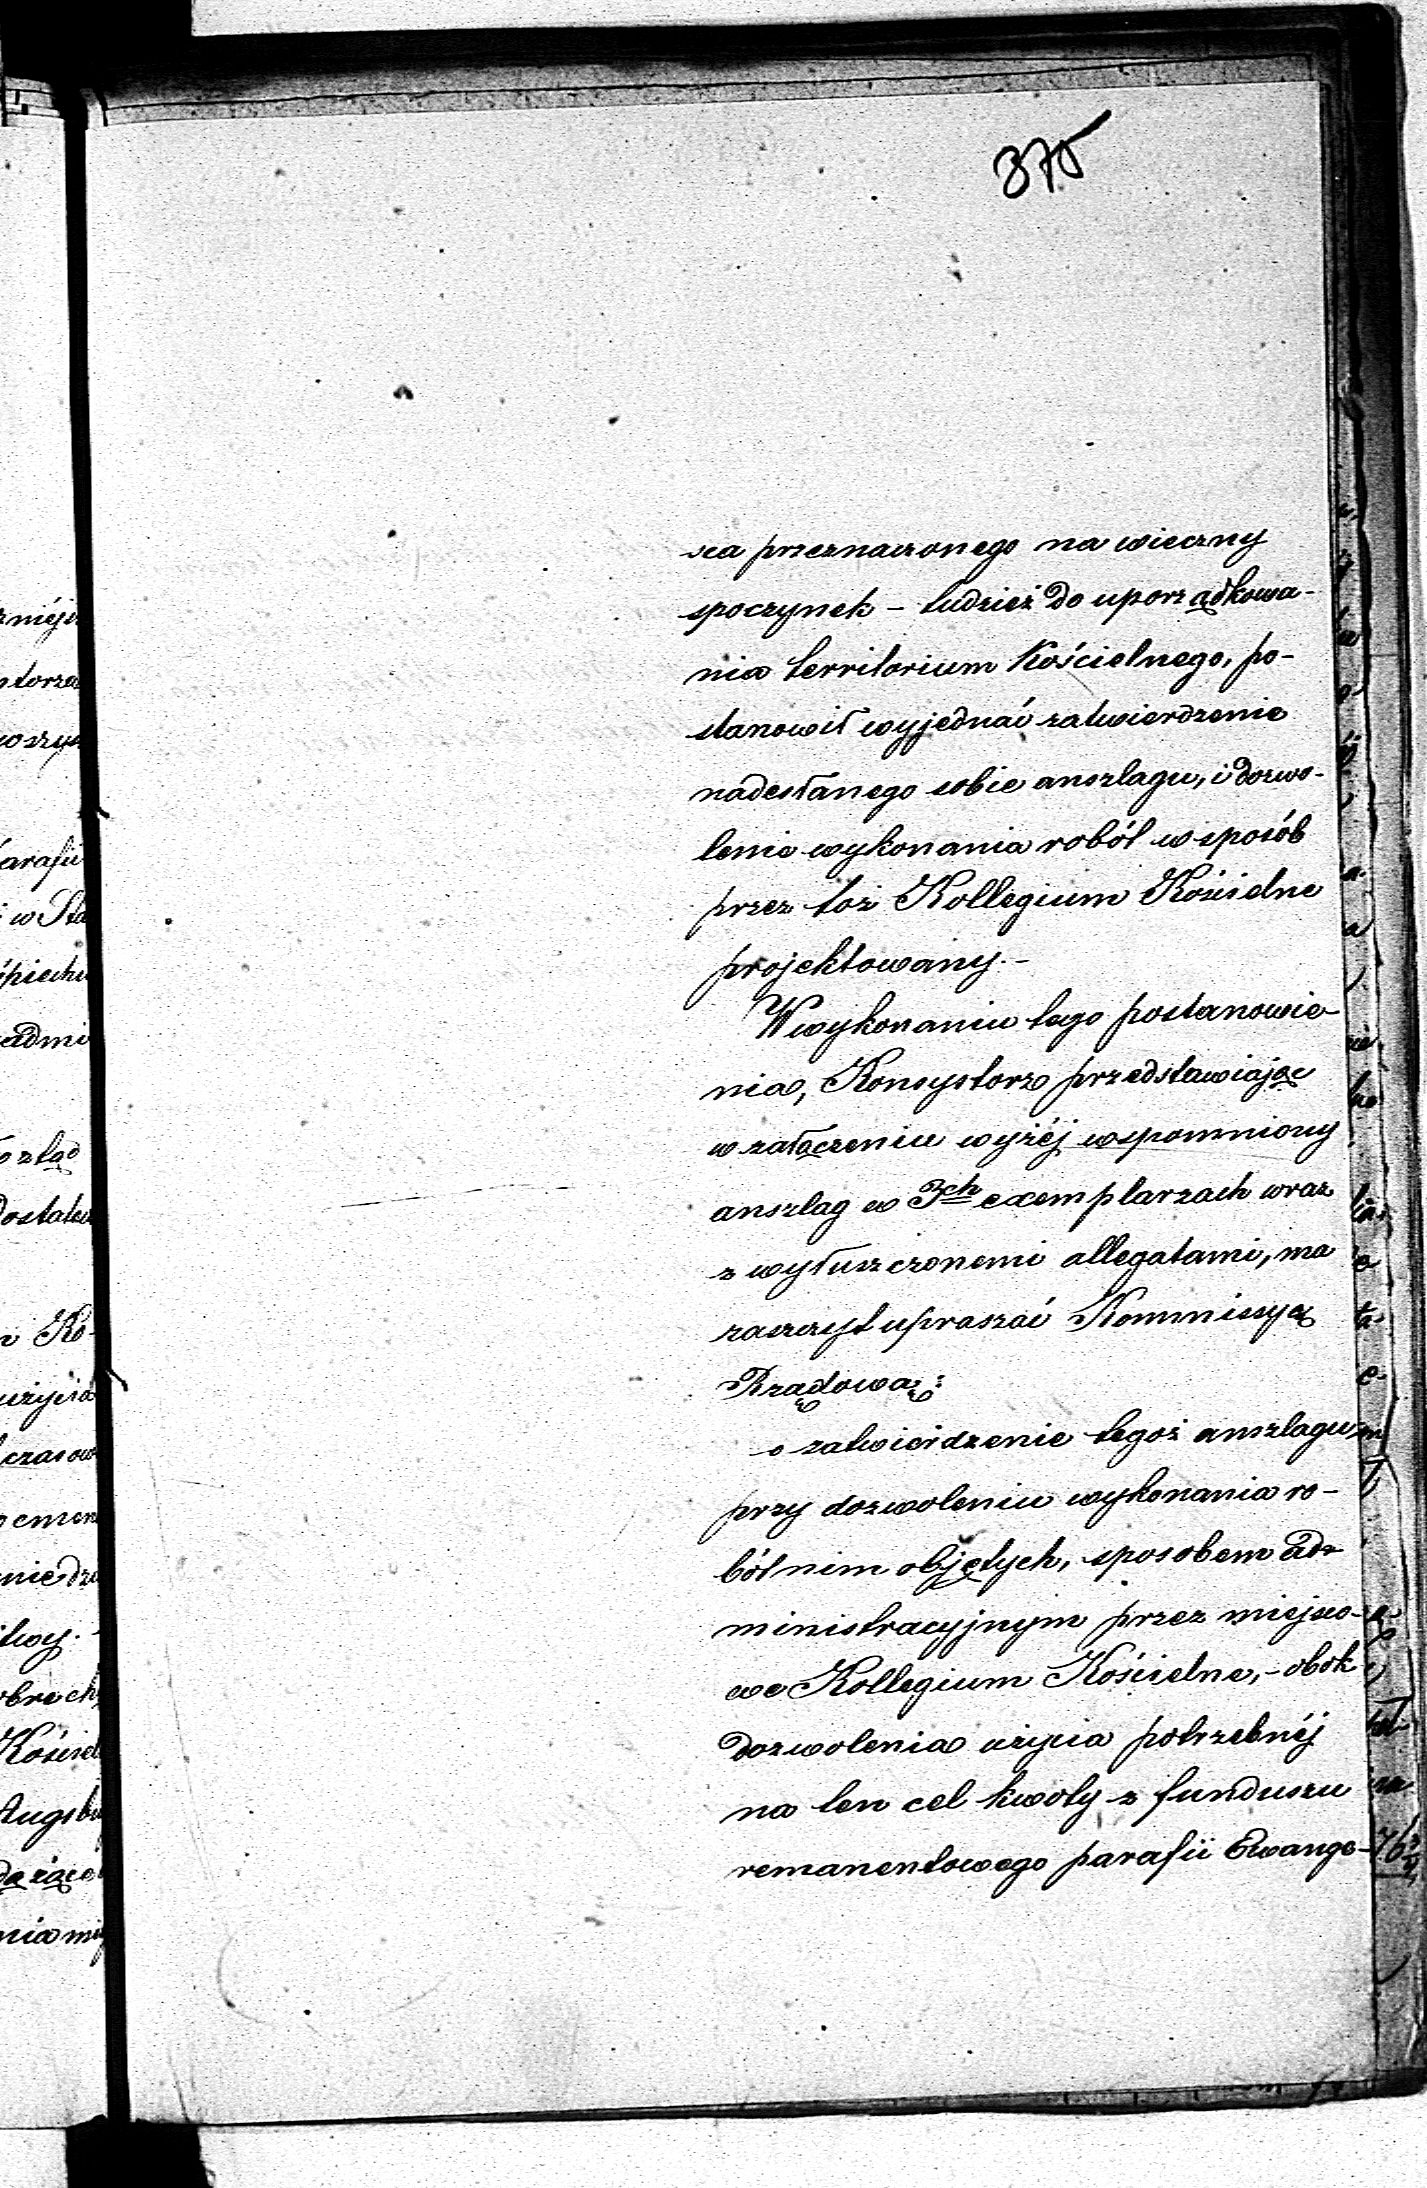 375
sca przeznaczonego na wieczny
spoczynek – tudzież do uporządkowa-
nia territorium Kościelnego, po-
stanowił wyjednać zatwierdzenie
nadesłanego sobie anszlagu, i dozwo-
lenie wykonania robót w sposób
przez toż Kollegium Kościelne
projektowany.–
W wykonaniu tego postanowie-
nia, Konsystorz przedstawiając
w załączeniu wyżéj wspomniony
anszlag w 3ch exemplarzach wraz
z wyłuszczonemi allegatami, ma
zaszczyt upraszać Kommissyą
Rządową:
o zatwierdzenie tegoż anszlagu,
przy dozwoleniu wykonania ro-
bót nim objętych, sposobem ad-
ministracyjnym przez miejsco-
we Kollegium Kościelne, – obok
dozwolenia użycia potrzebnéj
na ten cel kwoty z funduszu
remanentowego parafii Ewange-